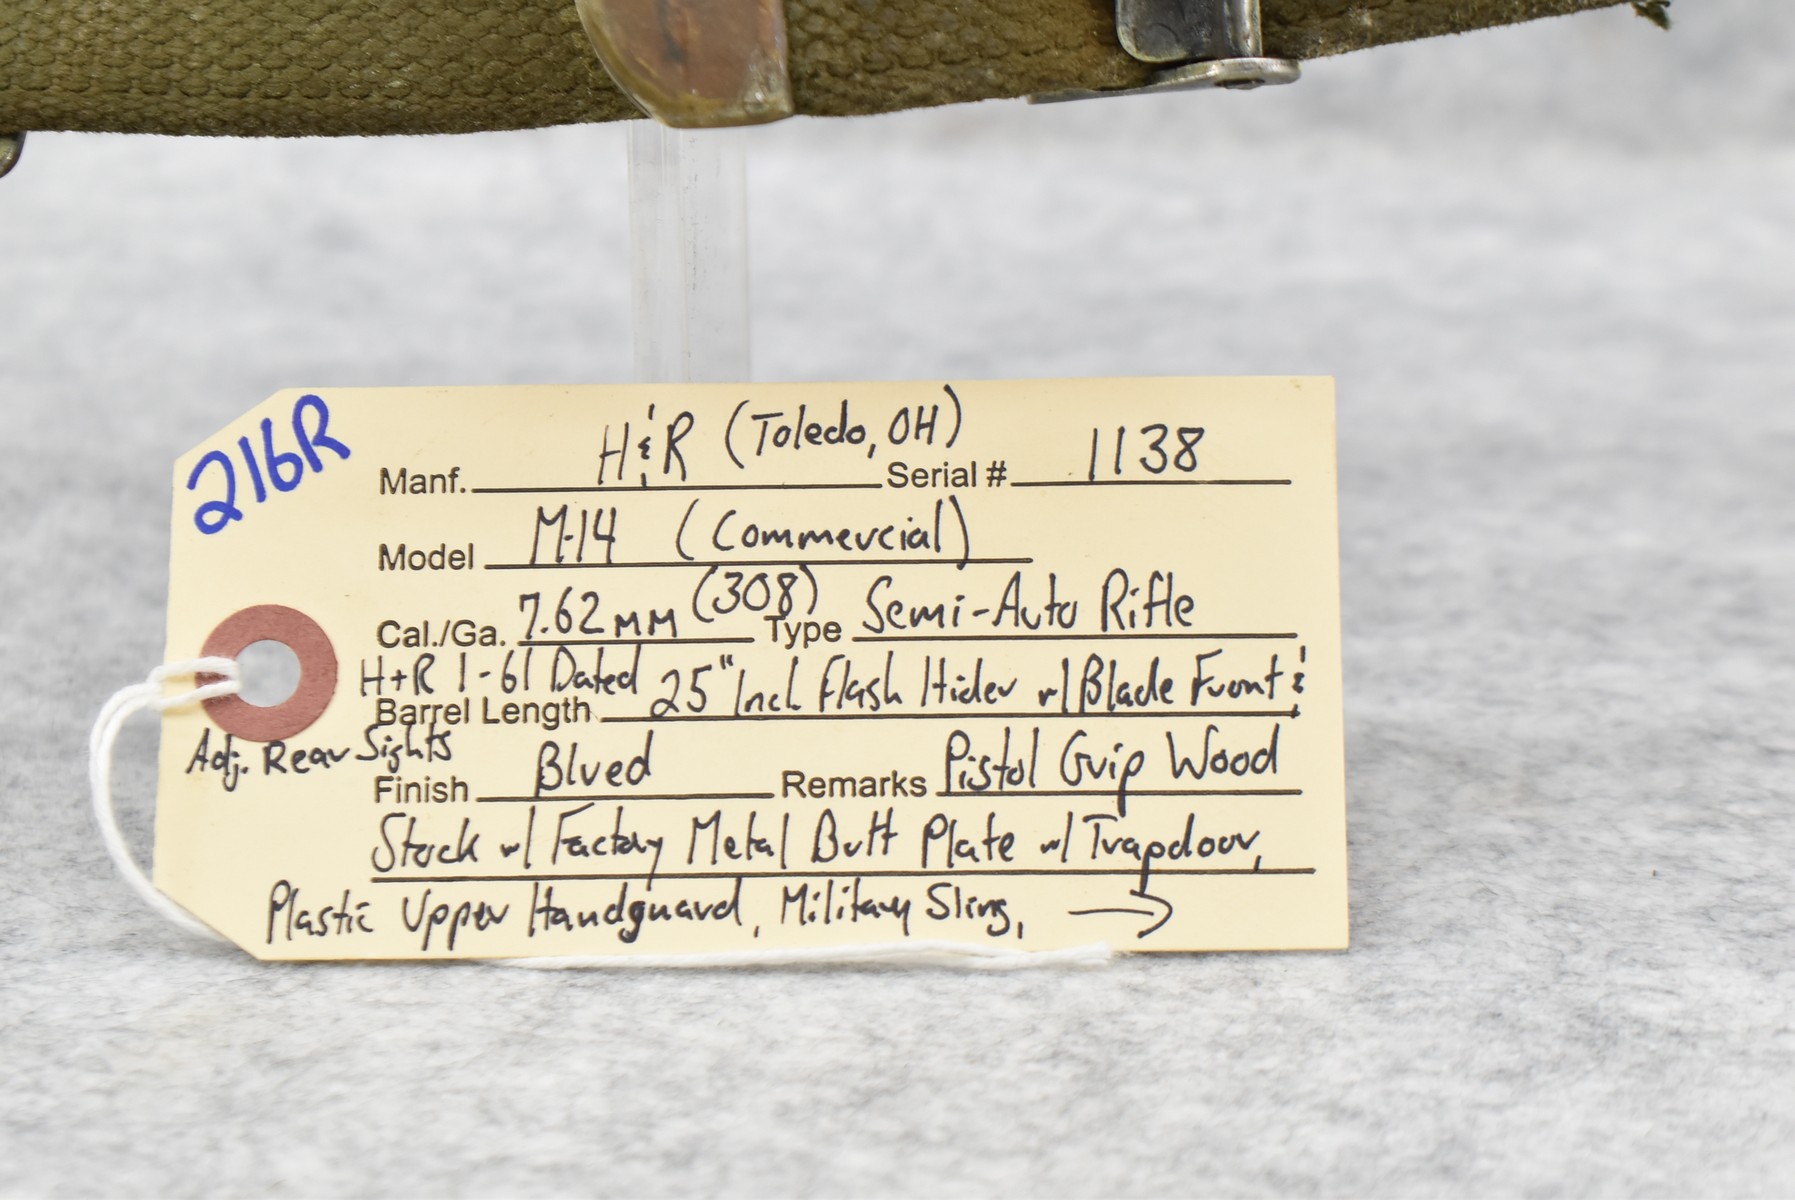 216R
Manf. H&R (Toledo, OH) Serial # 1138
Model M-14 (Commercial)
Cal./Ga. 7.62mm (308) Type Semi-Auto Rifle
H+R 1-61 Dated
Barrel Length 25" Incl Flash Hider w/ Blade Front &
Adj. Rear Sights
Finish Blued Remarks Pistol Grip Wood
Stock w/ Factory Metal Butt Plate w/ Trapdoor,
Plastic Upper Handguard, Military Sling, →